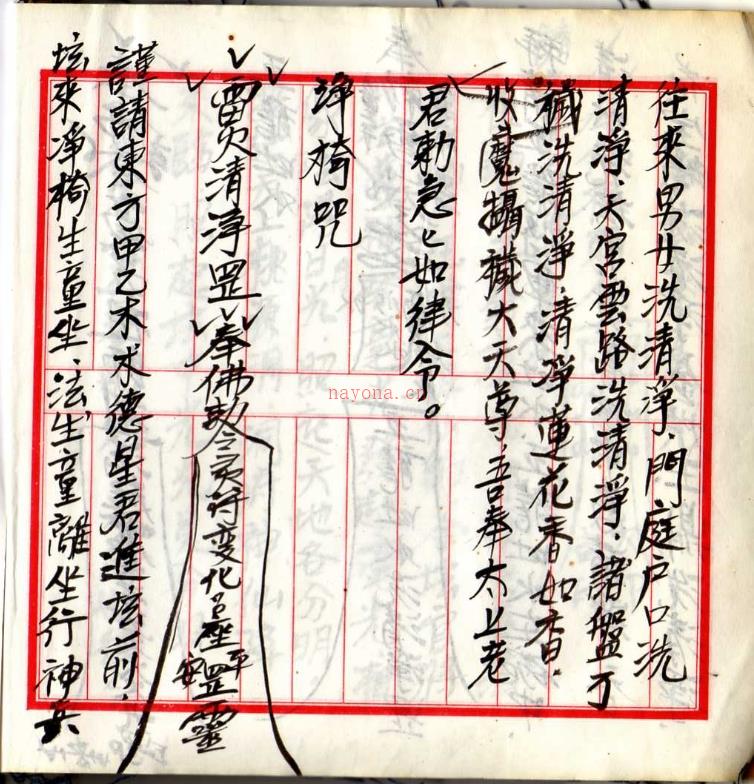 往來男女洗清淨、門庭戶口洗
清淨、天宮雲路洗清淨、諸盤丁
穢洗清淨、清凈蓮花香如香、
收魔攝穢大天尊、吾奉太上老
君勅急匕如律令。
凈椅咒
清淨罡 奉佛敕令 符变化 座 罡 平安 靈
謹請東方甲乙木木德星君進坛前、
坛來凈椅生童坐、法生童離坐行神兵
nayona.cn